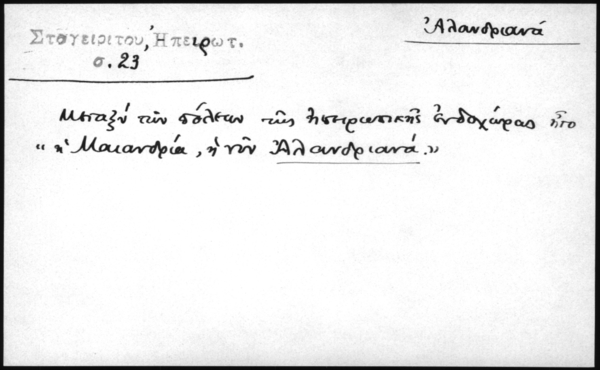 Σταγειρίτου, Ἠπειρωτ.
σ. 23
Ἀλανδριανά
Μεταξύ τῶν πόλεων τῆς ἠπειρωτικῆς ἐνδοχώρας ἦτο
“ἡ Μαιανδρία, ἡ νῦν Ἀλανδριανά.”